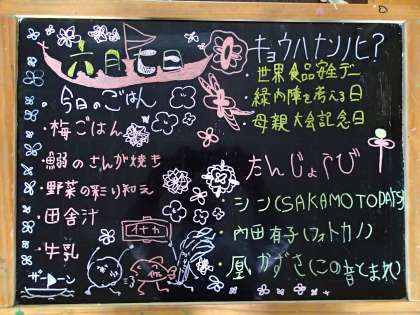 六月七日
今日のごはん
・梅ごはん
・鰯のさんが焼き
・野菜の彩り和え
・田舎汁
・牛乳
ザザーン
イナカ
キョウハナンノヒ?
・世界食品安全デー
・緑内障を考える日
・母親大会記念日
たんじょうび
・シン(SAKAMOTODAYS)
・内田有子(フォトカノ)
・凰かずさ(この音とまれ!)